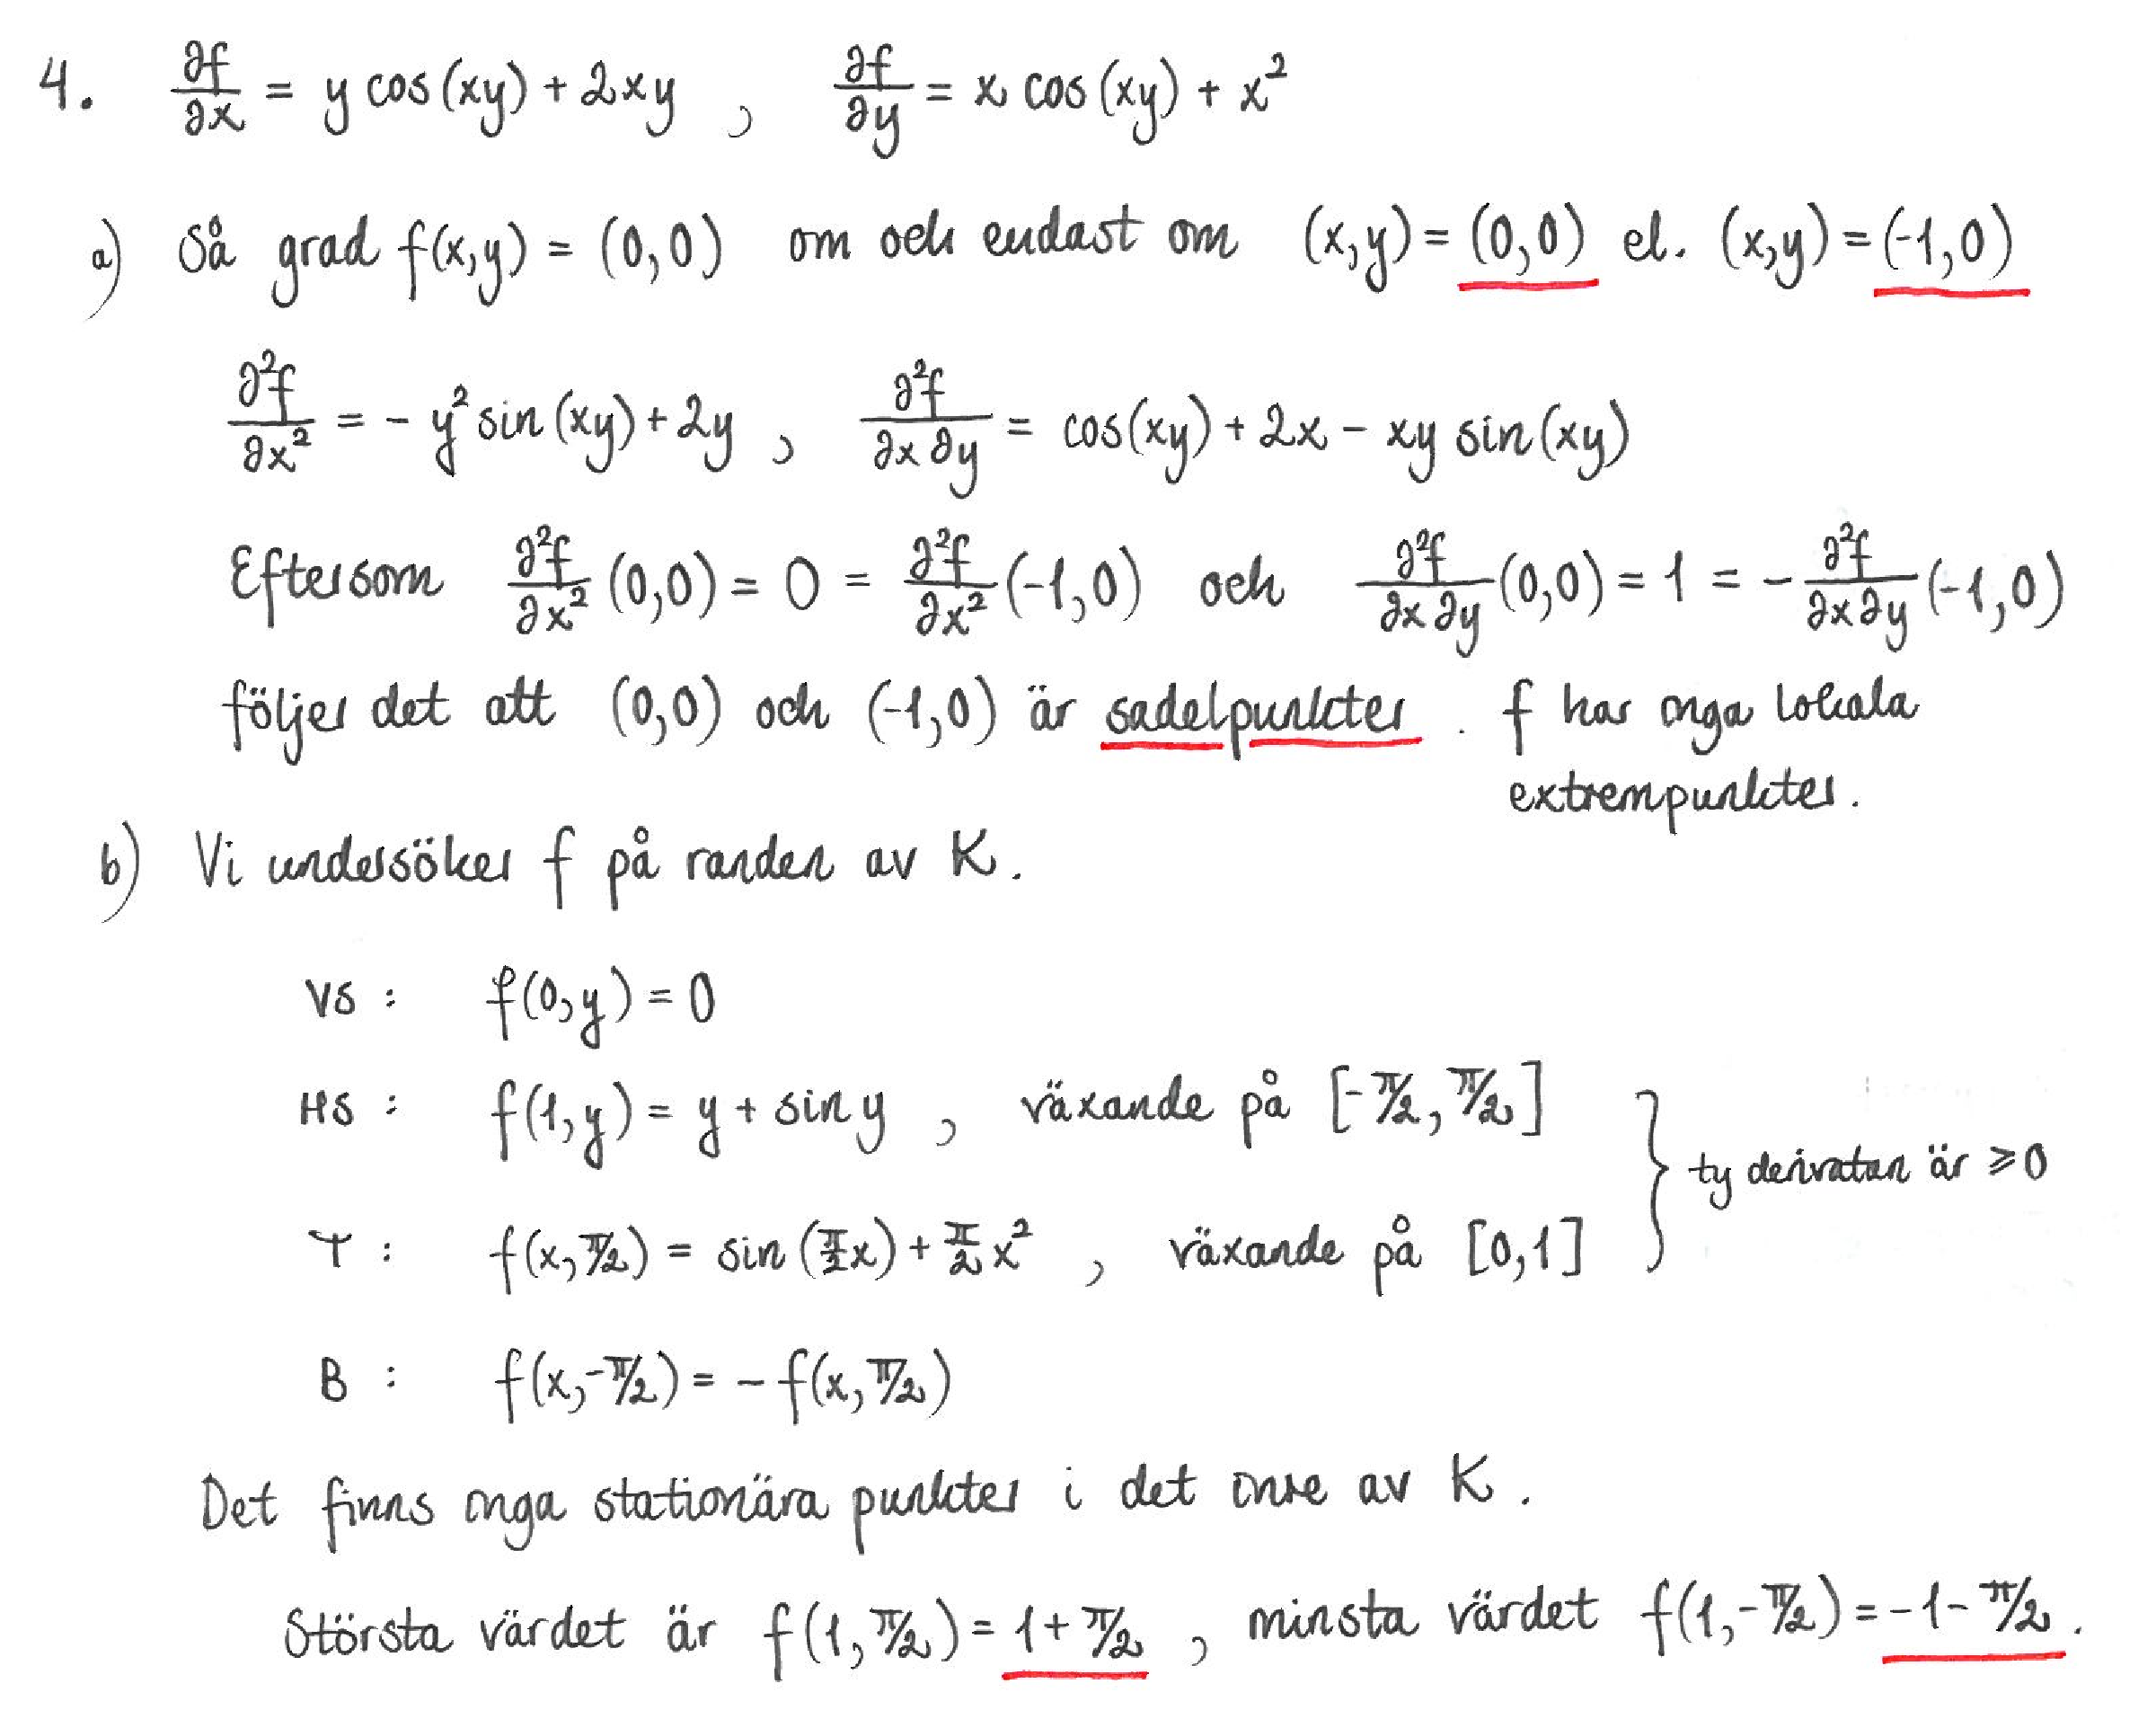 4. ∂f/∂x = y cos(xy) + 2xy , ∂f/∂y = x cos(xy) + x²
a) Så grad f(x,y) = (0,0) om och endast om (x,y) = (0,0) el. (x,y) = (-1,0)
∂²f/∂x² = - y² sin(xy) + 2y , ∂²f/∂x∂y = cos(xy) + 2x - xy sin(xy)
Eftersom ∂²f/∂x² (0,0) = 0 = ∂²f/∂x² (-1,0) och ∂²f/∂x∂y (0,0) = 1 = - ∂²f/∂x∂y (-1,0)
följer det att (0,0) och (-1,0) är sadelpunkter . f har inga lokala
extrempunkter.
b) Vi undersöker f på randen av K.
VS : f(0,y) = 0
HS : f(1,y) = y + sin y , växande på [-π/2, π/2]
ty derivatan är ≥ 0
T : f(x, π/2) = sin(π/2 x) + π/2 x² , växande på [0,1]
B : f(x, -π/2) = - f(x, π/2)
Det finns inga stationära punkter i det inre av K.
Största värdet är f(1, π/2) = 1 + π/2 , minsta värdet f(1, -π/2) = -1 - π/2 .